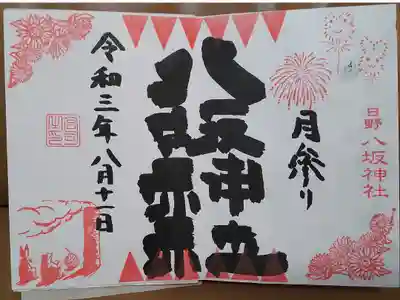 日野 八坂神社
月参り
八坂神社
令和三年八月十一日